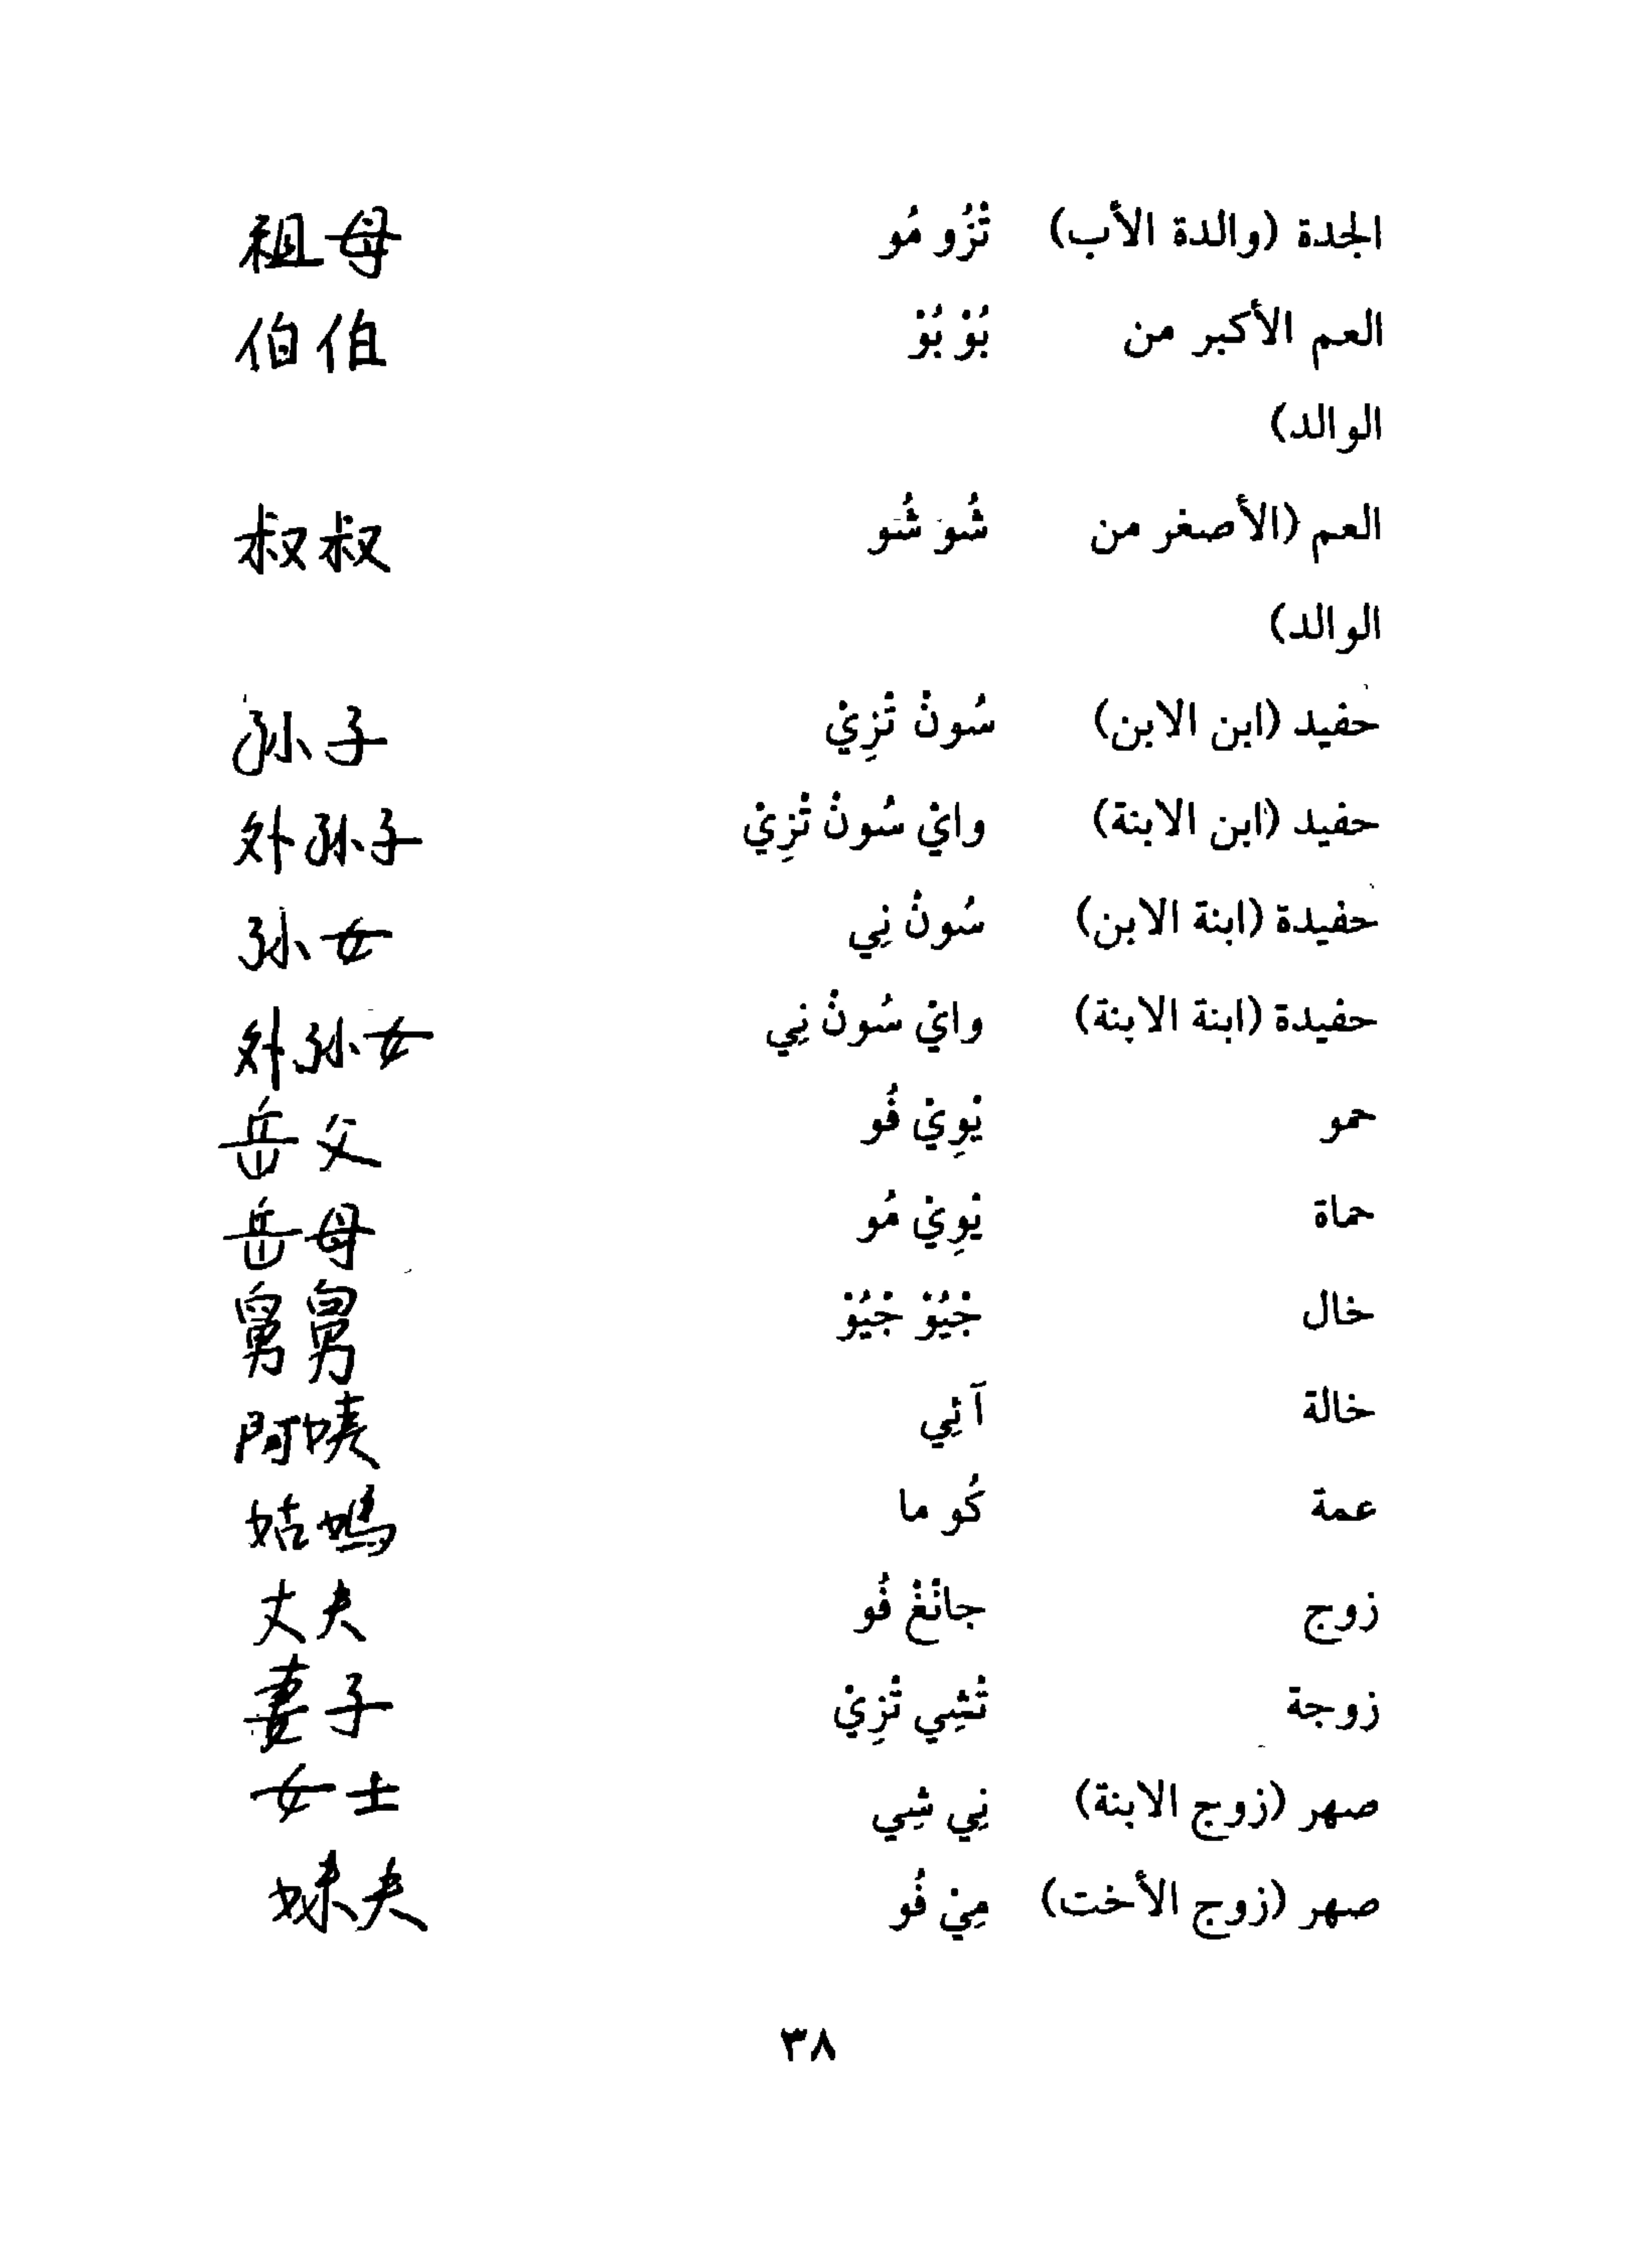 الجدة (والدة الأب) تْزُو مُو 祖母
العم الأكبر من بُوْ بُوْ 伯伯
الوالد)
العم (الأصغر من شُو شُو 叔叔
الوالد)
حفيد (ابن الابن) سُونْ تْزِيْ 孙子
حفيد (ابن الابنة) وايْ سُونْ تْزِيْ 外孙子
حفيدة (ابنة الابن) سُونْ نِي 孙女
حفيدة (ابنة الابنة) وايْ سُونْ نِي 外孙女
حمو يْوِيْ فُو 岳父
حماة يْوِيْ مُو 岳母
خال جْيُوْ جْيُوْ 舅舅
خالة آئِي 阿姨
عمة كُو ما 姑妈
زوج جانْغْ فُو 丈夫
زوجة تْشِي تْزِيْ 妻子
صهر (زوج الابنة) نِي شِي 女士
صهر (زوج الأخت) مِيْ فُو 妹夫
٣٨